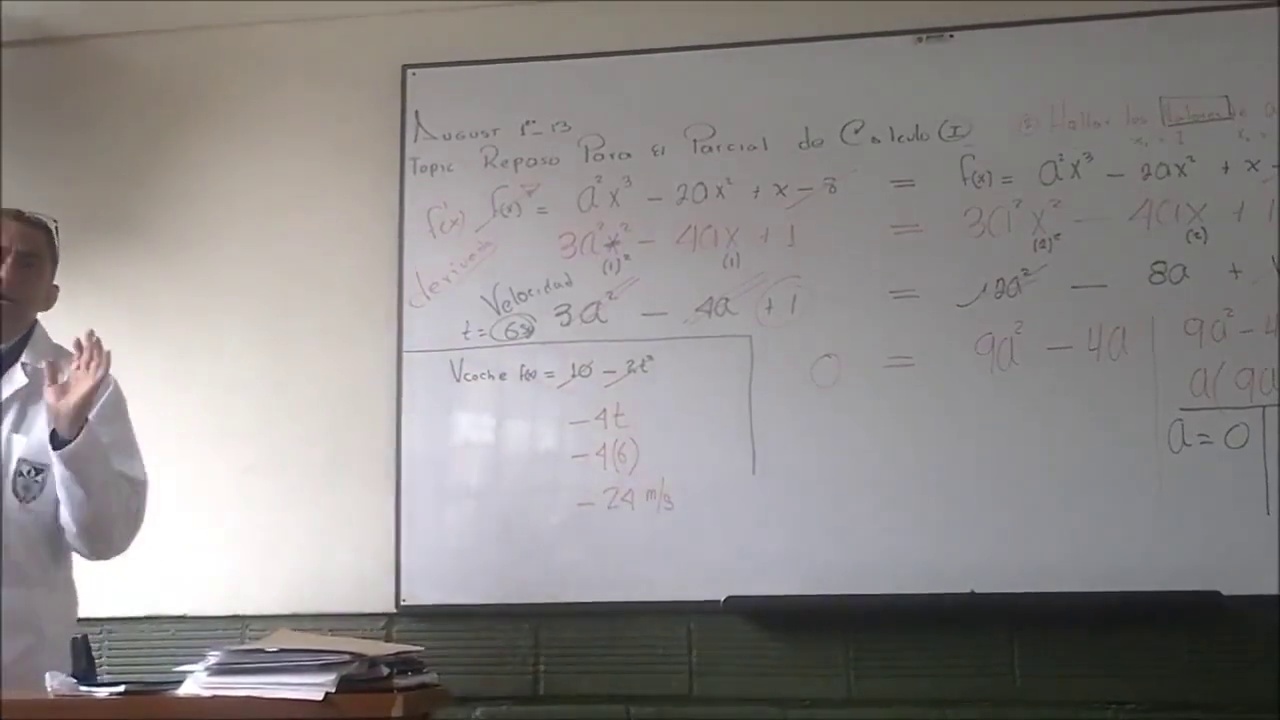 August 1º-13
Topic Repaso Para El Parcial de Calculo (I)
② Hallar los Valores de a
x₁ = 1
f'(x) f(x) = a²x³ - 2ax² + x - 8 = f(x) = a²x³ - 2ax² + x -
derivada 3a²x² - 4ax + 1 = 3a²x² - 4ax + 1
(1)² (1) (2)² (2)
Velocidad 3a² - 4a + 1 = 12a² - 8a +
t = 6s
0 = 9a² - 4a
9a² - 4
a(9a
a = 0
Vcoche f(x) = 10 - 2t²
-4t
-4(6)
-24 m/s